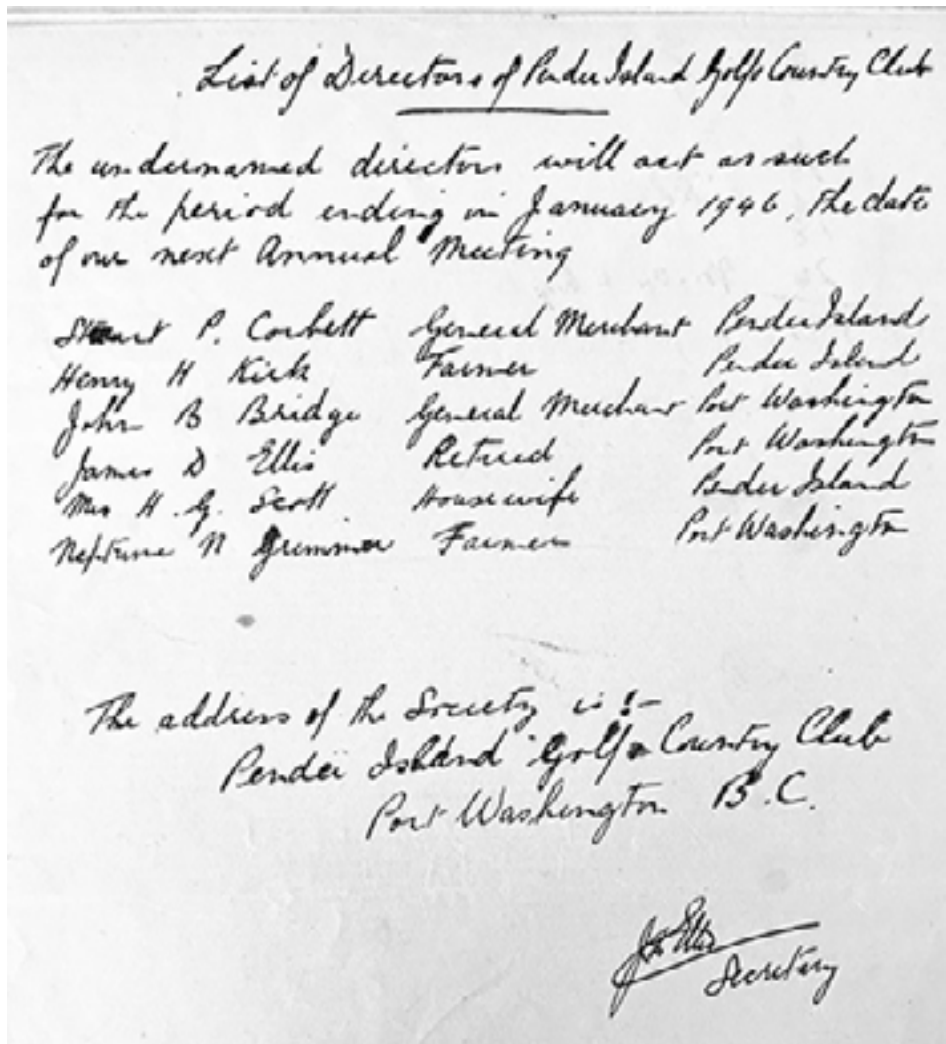 List of Directors of Pender Island Golf & Country Club
The undernamed directors will act as such
for the period ending in January 1946, the date
of our next Annual Meeting
Stuart P. Corbett General Merchant Pender Island
Henry H Kirk Farmer Pender Island
John B Bridge General Merchant Port Washington
James D Ellis Retired Port Washington
Mrs H. G. Scott Housewife Pender Island
Neptune N Grimmer Farmer Port Washington
The address of the Society is :-
Pender Island Golf & Country Club
Port Washington B.C.
Ellis
Secretary